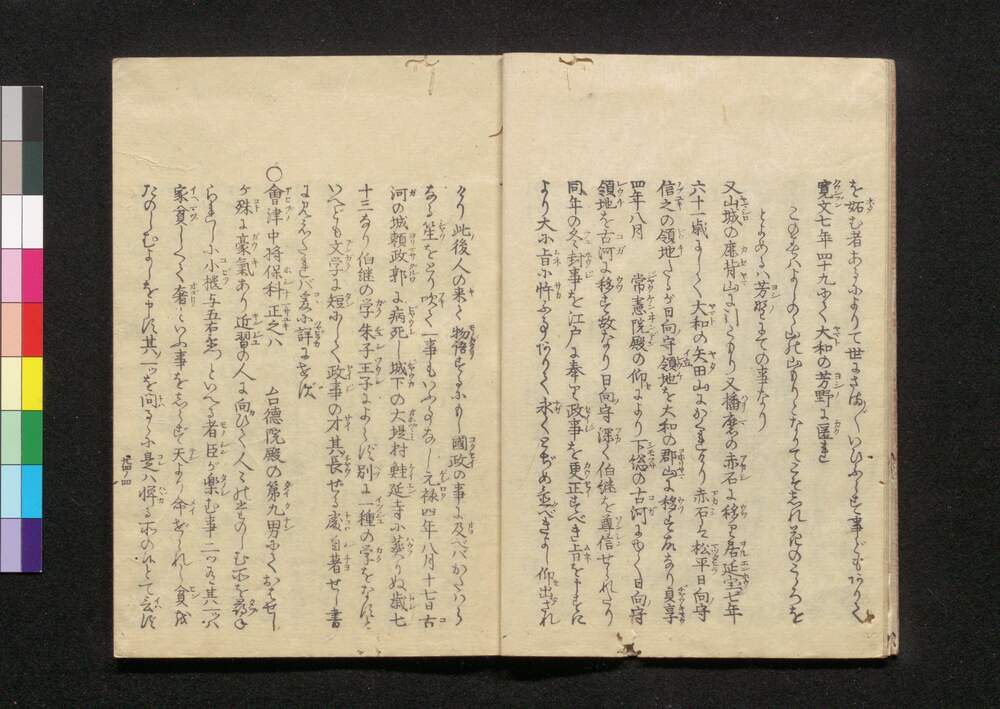 を妬む者あるによりて世にさまざまいひふらす事どもありて
寛文七年四十九にて大和の芳野に匿れ
とよめるハ芳野にての事なり
又山城の鹿背山に又播磨の赤石に移り居延宝七年
六十一歳にして大和の矢田山にかくれたり赤石ハ松平日向守
信之の領地たるが日向守領地を大和の郡山に移さるゝ故なり貞享
四年八月 常憲院殿の仰によりて下総の古河にゆく日向守
領地を古河に移さるゝ故なり日向守深く伯継を尊信せられたり
同年の冬封事を江戸に奉りて政事を更正すべき旨をまうすに
より大に旨に忤ふ事ありて永くとぢめ置べきよし仰出され
けり此後人の来て物語するにも國政の事に及べバかたハらに
ある笙をとり吹て一事もいふ事なし元禄四年八月十七日古
河の城頼政郭に病死し城下の大堤村鮭延寺に葬りぬ歳七
十三なり伯継の学朱子王子によらず別に一種の学をなす
いへども文学に短にして政事の才其長ぜる處自著せし書
に見えたれバ爰に詳にせず
○會津中将保科正之ハ 台德院殿の第九男にておはせし
が殊に豪氣あり近習の人に向ひて人々のたのしむ所を尋ね
られしに小櫃与五右衛門といへる者臣が樂む事二つあり其一ツハ
家貧しくて奢といふ事をしらず天より命ぜられし貧を
たのしむよしを申す其一ツを問るゝに是ハ憚る所のありとて言ず